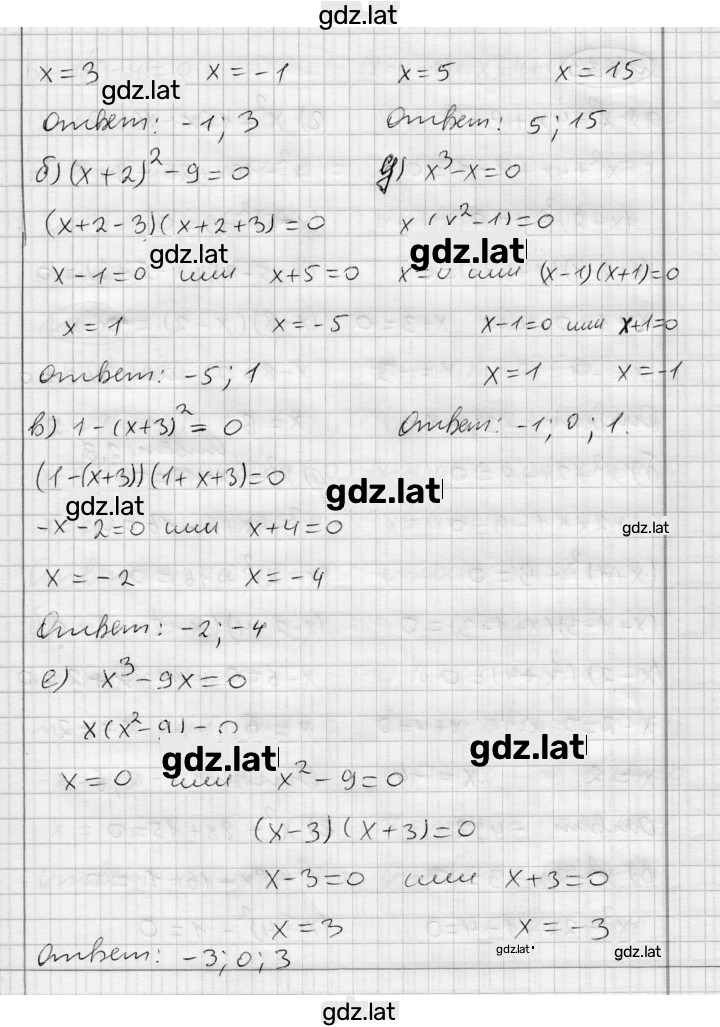 gdz.lat
x = 3 x = -1
gdz.lat
Ответ: -1; 3
б) (x+2)² - 9 = 0
(x+2-3)(x+2+3) = 0
gdz.lat
x-1=0 или x+5=0
x = 1 x = -5
Ответ: -5; 1
в) 1-(x+3)² = 0
(1-(x+3))(1+x+3)=0
gdz.lat
-x-2=0 или x+4=0
x = -2 x = -4
Ответ: -2; -4
е) x³-9x=0
x(x²-9)=0
gdz.lat
x=0 или x²-9=0
(x-3)(x+3)=0
x-3=0 или x+3=0
x=3 x=-3
Ответ: -3; 0; 3
x = 5 x = 15
Ответ: 5; 15
д) x³-x=0
x(x²-1)=0
gdz.lat
x=0 или (x-1)(x+1)=0
x-1=0 или x+1=0
x=1 x=-1
Ответ: -1; 0; 1.
gdz.lat
gdz.lat
gdz.lat
gdz.lat
gdz.lat
gdz.lat